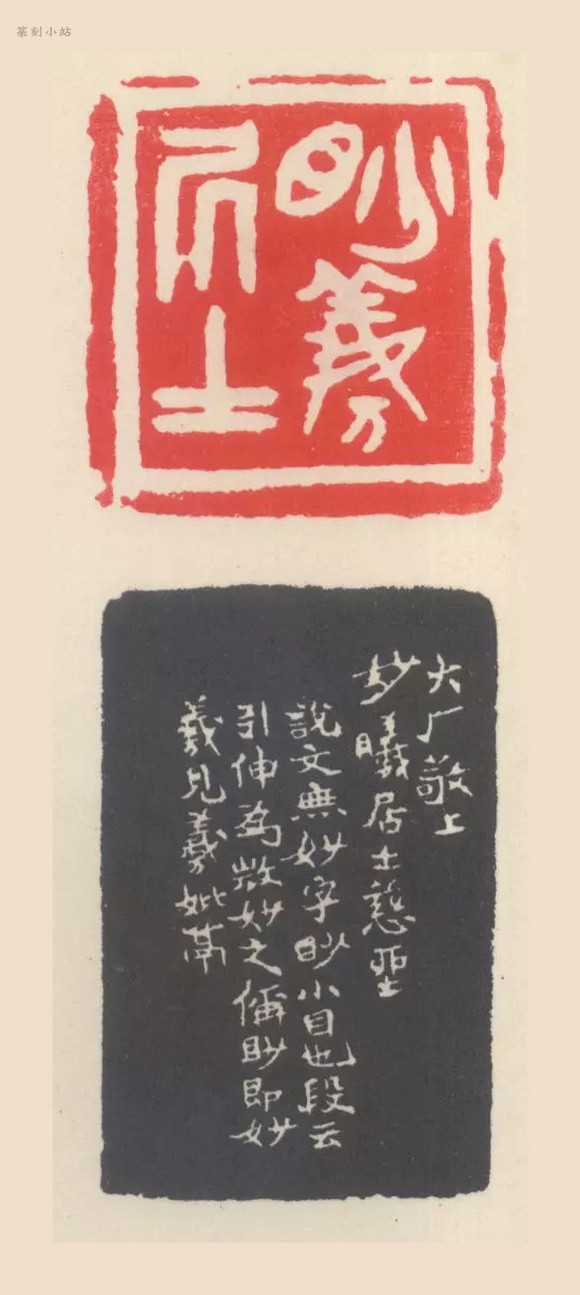 篆刻小站
眇羲
居士
大厂敬上
妙曦居士慈
說文無妙字眇小目也段云
引伸為微妙之偁眇即妙
羲見羲妣鬲